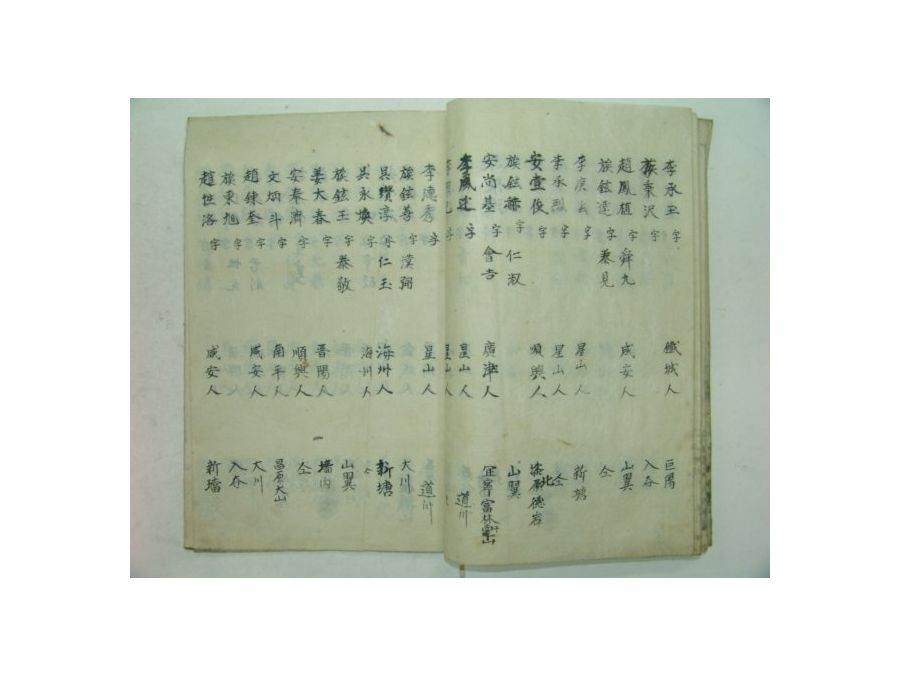 李承玉 字 鐵城人 巨陽
族秉沢 字 入谷
趙鳳植 字 舜九 咸安人 山翼
族鉉達 字 兼見 仝
李 字 星山人 新塘
李承烈 字 星山人 仝
安壹俊 字 順興人 德岩
族鉉 字 仁淑 山翼
安尚基 字 會吉 廣津人 宜寧富林
李鳳 字 星山人 道川
字 星山人
李德秀 字 星山人 道川
族鉉善 字 漢弼 大川
吳瓚淳 字 仁玉 海州人 新塘
吳永煥 字 海州人 山翼
族鉉玉 字 恭敬
姜大春 字 晋陽人 墻內
安奉濟 字 順興人 仝
文炳斗 字 南平人 昌原大山
趙鍊奎 字 咸安人 大川
族秉旭 字 入谷
趙性洛 字 咸安人 新